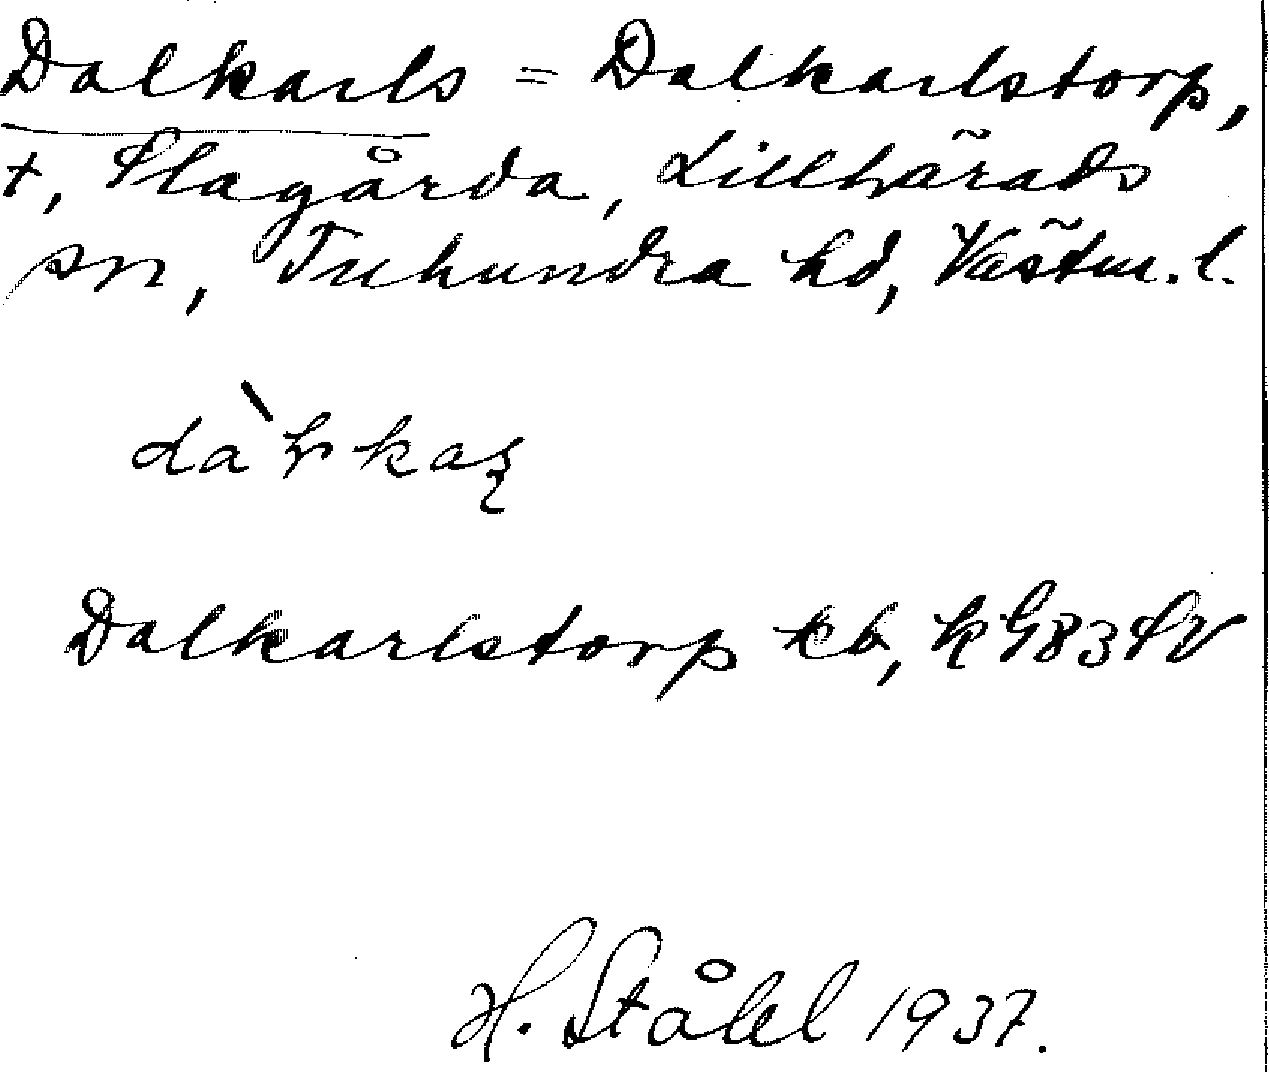 Dalkarls = Dalkarlstorp,
t, Slagårda, Lillhärads
sn, Tuhundra hd, Västm. l.
Dalkarlstorp kb, k G83SV
H. Ståhl 1937.